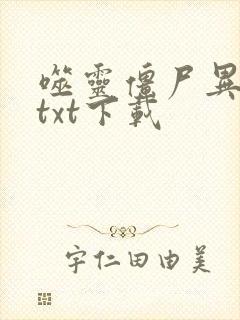 噬靈僵尸異
txt下載
宇仁田由美